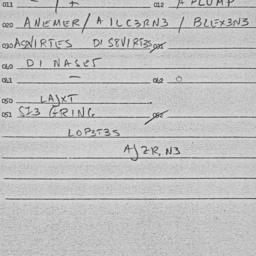 011 012 A PLUMP
020 ANEMER/A ILC3RN3 / BLEX3N3
030 ASNIRTES DISEVIRT3S 035
040 DI NASET
041 — 042 O
050 LAJXT
051 GRING 052
LOPST3S
AJZR, N3